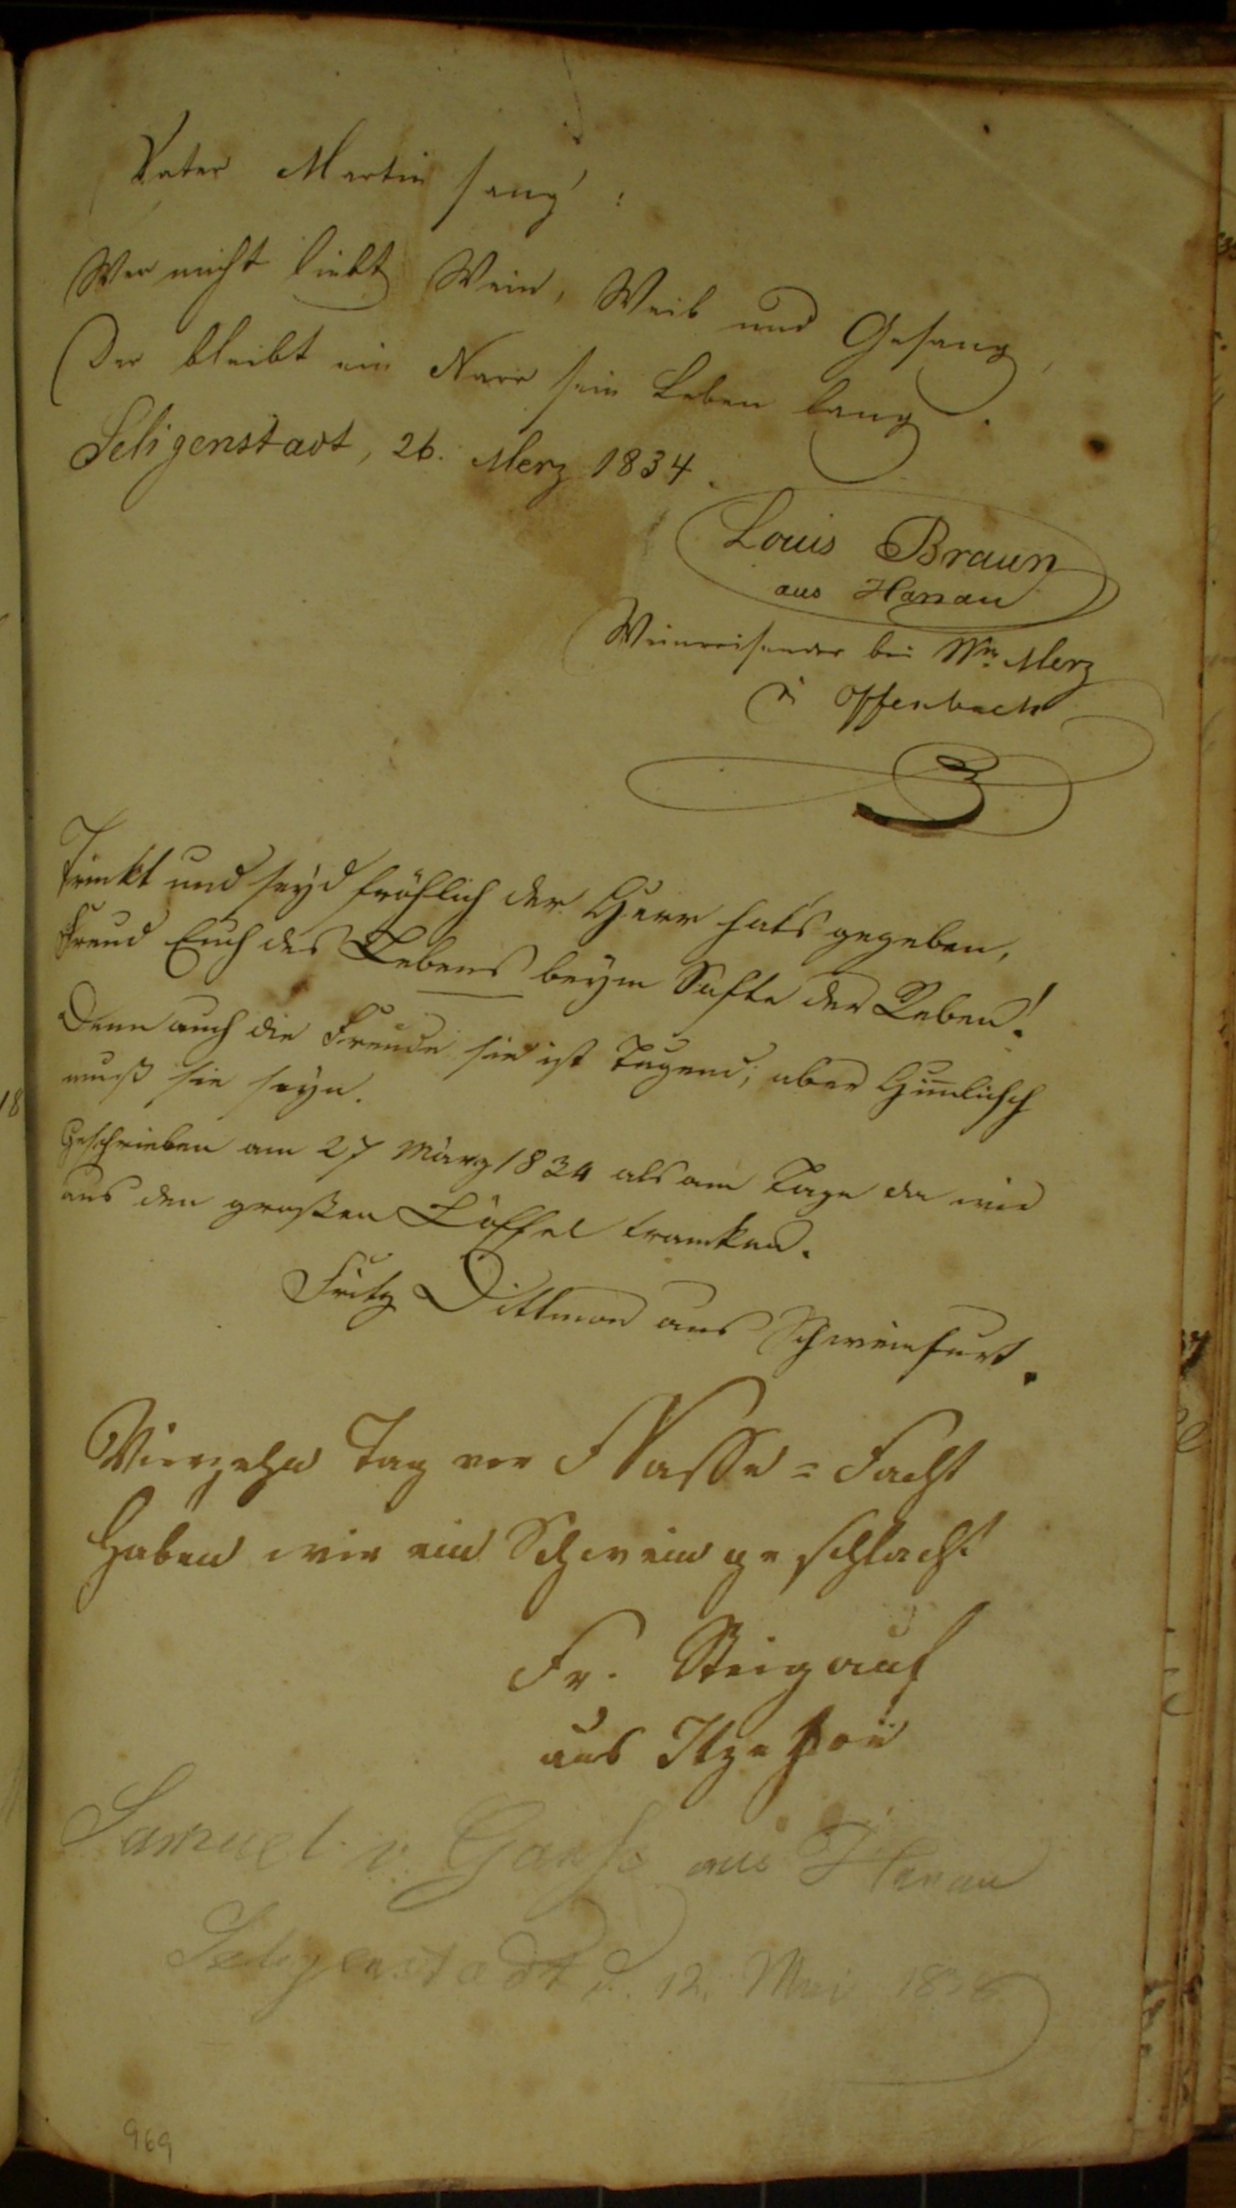 Vater Martin sang':
Wer nicht liebt Wein, Weib und Gesang,
Der bleibt ein Narr sein Leben lang.
Seligenstadt, 26. Merz 1834.
Louis Braun
aus Hanau
Weinreisender bei Wm. Merz
à Offenbach
Trinkt und seyd fröhlich der Herr hats gegeben,
Freud Euch des Lebens beym Safte der Reben!
Denn auch die Freude sie ist Tugend; aber Himlisch
muß sie seyn.
Geschrieben am 27 März 1834 als am Tage da wir
aus den großen Löffel tranken.
Fritz Dittmar aus Schweinfurt.
Vierzehn Tag vor Nasse=Facht
Haben wir ein Schwein geschlacht
Fr. Steigauf
aus Itzehoe
Samuel v. aus Hanau
Seligenstadt d. 12. Mai
969
18